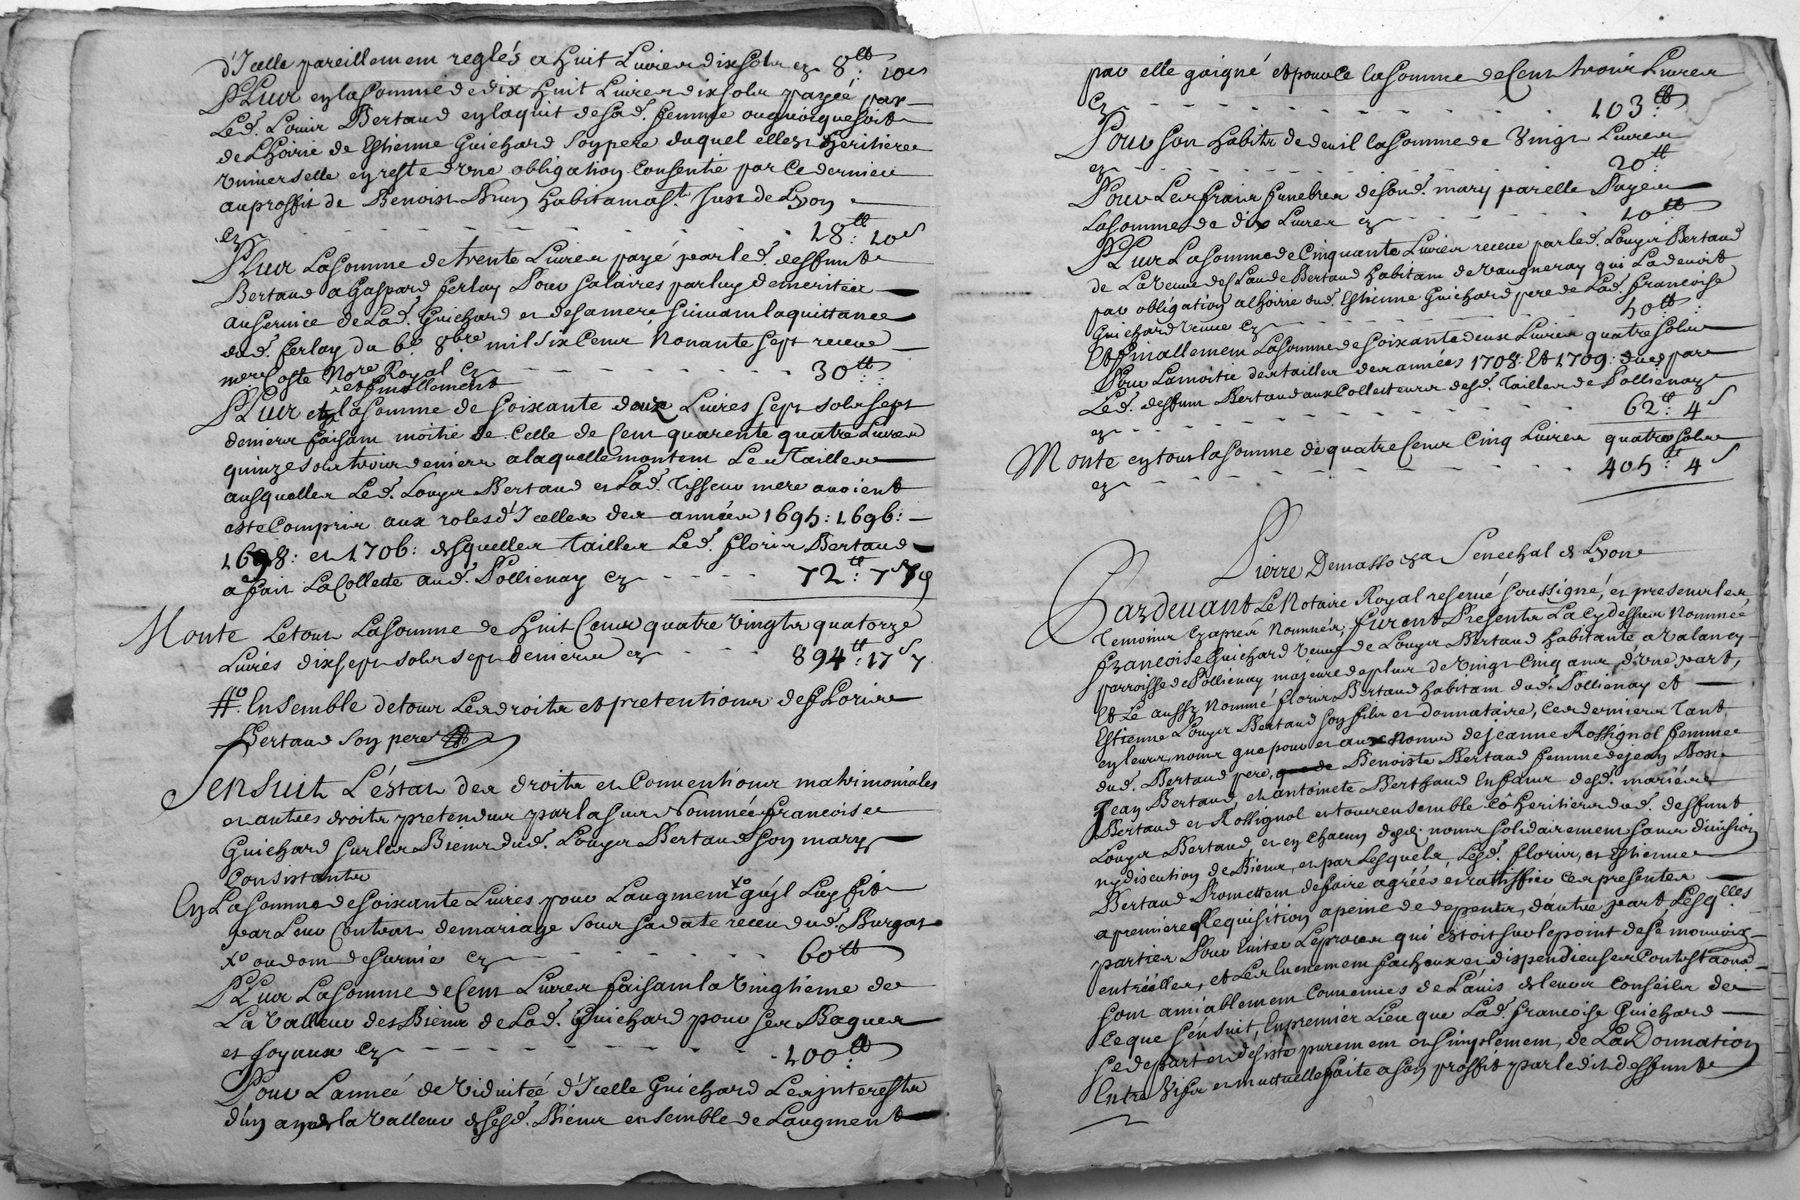 d'Icelle pareillement reglés a huit Livres dix sols cy 8lt: 10s
Plus en la somme de dix huit Livres dix sols payée par
Led. Louis Bertaud en laquit de sad. femme ou quoique soit
de Lhoirie de Estienne Guichard son pere duquel elle est heritiere
universelle en reste d'une obligation consentie par ce dernier
au proffit de Benoist Brun habitant a St. Just de Lyon
cy - - - - - - 18lt: 10s
Plus La somme de trente Livres payé par led. deffunt
Bertaud a Gaspard ferlay Pour salaires par luy demerites
au service de Lad. Guichard et de sa mere suivant la quittance
dud. ferlay du 6e. 8bre mil six Cens Nonante sept receue
me Coste Nore Royal cy - - - - - 30lt:
et finallement
Plus en la somme de soixante douze Livres sept sols sept
deniers faisant moitié de Celle de Cent quarente quatre Livres
quinze sols trois deniers a laquelle montent Les Tailles
ausquelles Led. Louys Bertaud et Lad. Tisseur mere avoient
este Compris aux roles d'Icelles des années 1695: 1696:
1698: et 1706: desquelles Tailles Led. floris Bertaud
a fait La Collette aud. Pollienay cy - - - - 72lt: 7s 7d
Monte Le tout La somme de huit Cens quatre vingts quatorze
Livres dix sept sols sept deniers cy - - - - 894lt: 17s 7
#o. Ensemble de tous Les droits et pretentions de floris
Bertaud son pere
Sensuit L'éstat des droits et Conventions matrimoniales
et autres droits pretendus par la sus Nommée francoise
Guichard sur les Biens dud. Louys Bertaud son mary
Consistants
En La somme de soixante Livres pour Laugment xo qu'il Luy fit
par Leur Contrat de mariage sous sa date receu dud. Burgat
xo ou don de survie cy - - - - - 60lt
Plus La somme de Cent Livres faisant la vingtieme de
La valleur des Biens de Lad. Guichard pour ses Bagues
et Joyaux cy - - - - - - 100lt
Pour L'année de viduitée d'Icelle Guichard Les jnterests
d'un an de la valleur de sesd. Biens ensemble de Laugment
par elle gaigné et pour ce la somme de Cent trois Livres
cy - - - - - - 103lt
Pour son habits de deuil la somme de Vingt Livres
cy - - - - - - 20lt
Pour Les frais funebres de sond. mary par elle Payes
La somme de dix Livres cy - - - - - 10lt
Plus La somme de Cinquante Livres receue par led. Louys Bertaud
de La veuve de Claude Bertaud habitant de vaugneray qui La devoit
par obligation a lhoirie dud. Estienne Guichard pere de Lad. francoise
Guichard veuve cy - - - - - 50lt:
Et finallement La somme de soixante deux Livres quatre sols
Pour La moitie des tailles des années 1708: Et 1709: dues par
Led. deffunt Bertaud aux Collecteurs desd. Tailles de Pollienay
cy - - - - - - 62lt: 4s
Monte en tout la somme de quatre Cens Cinq Livres quatre sols
cy - - - - - - 405lt: 4s
Pierre Demasso esr Senechal de Lyon
Pardevant Le Notaire Royal reservé soussigné, et presents les
Temoins Cy aprés Nommés, furent Presents La Cy dessus Nommée
francoise Guichard veuve de Louys Bertaud habitante a valancy
parroisse de Pollienay majeure de plus de vingt Cinq ans d'une part,
Et Le aussy Nommé floris Bertaud habitant dud. Pollienay et
Estienne Louys Bertaud son fils et donnataire, Ces derniers Tant
en leurs noms que pour et aux Noms de Jeanne Rossignol femme
dud. Bertaud pere, Benoiste Bertaud femme de Jean
Jean Bertaud et antoinete Berthaud Enfans desd. mariés
Bertaud et Rossignol et tous ensemble Coheritiers dud. deffunt
Louys Bertaud et en Chacun desd. noms solidairement sans division
ny discution de Biens, et par Lesquels, Lesd. floris, et Estienne
Bertaud Promettent de faire agréer et rattiffier Ces presentes
a premiere Requisition a peine de depens, d'autre part Lesqlles
parties Pour Eviter Le proces qui Estoit sur le point de se mouvoir
entr'elles, et Les Evenement facheux et dispendieuses Contestaond.
sont amiablement Convenues de L'avis de leurs Conseils de
Ce que s'ensuit, En premier Lieu que Lad. francoise Guichard
se depart et desiste purement et simplement, de La Donnation
Entre Vifs et mutuelle faite a son proffit par ledit deffunt